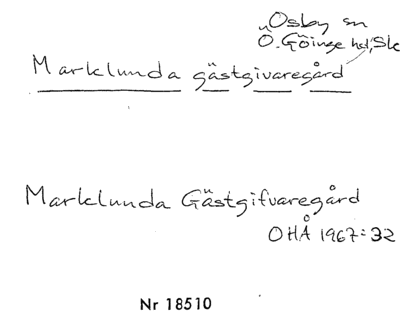 Osby sn
Ö. Göinge hd, Sk
Marklunda gästgivaregård
Marklunda Gästgifvaregård
OHÅ 1967:32
Nr 18510